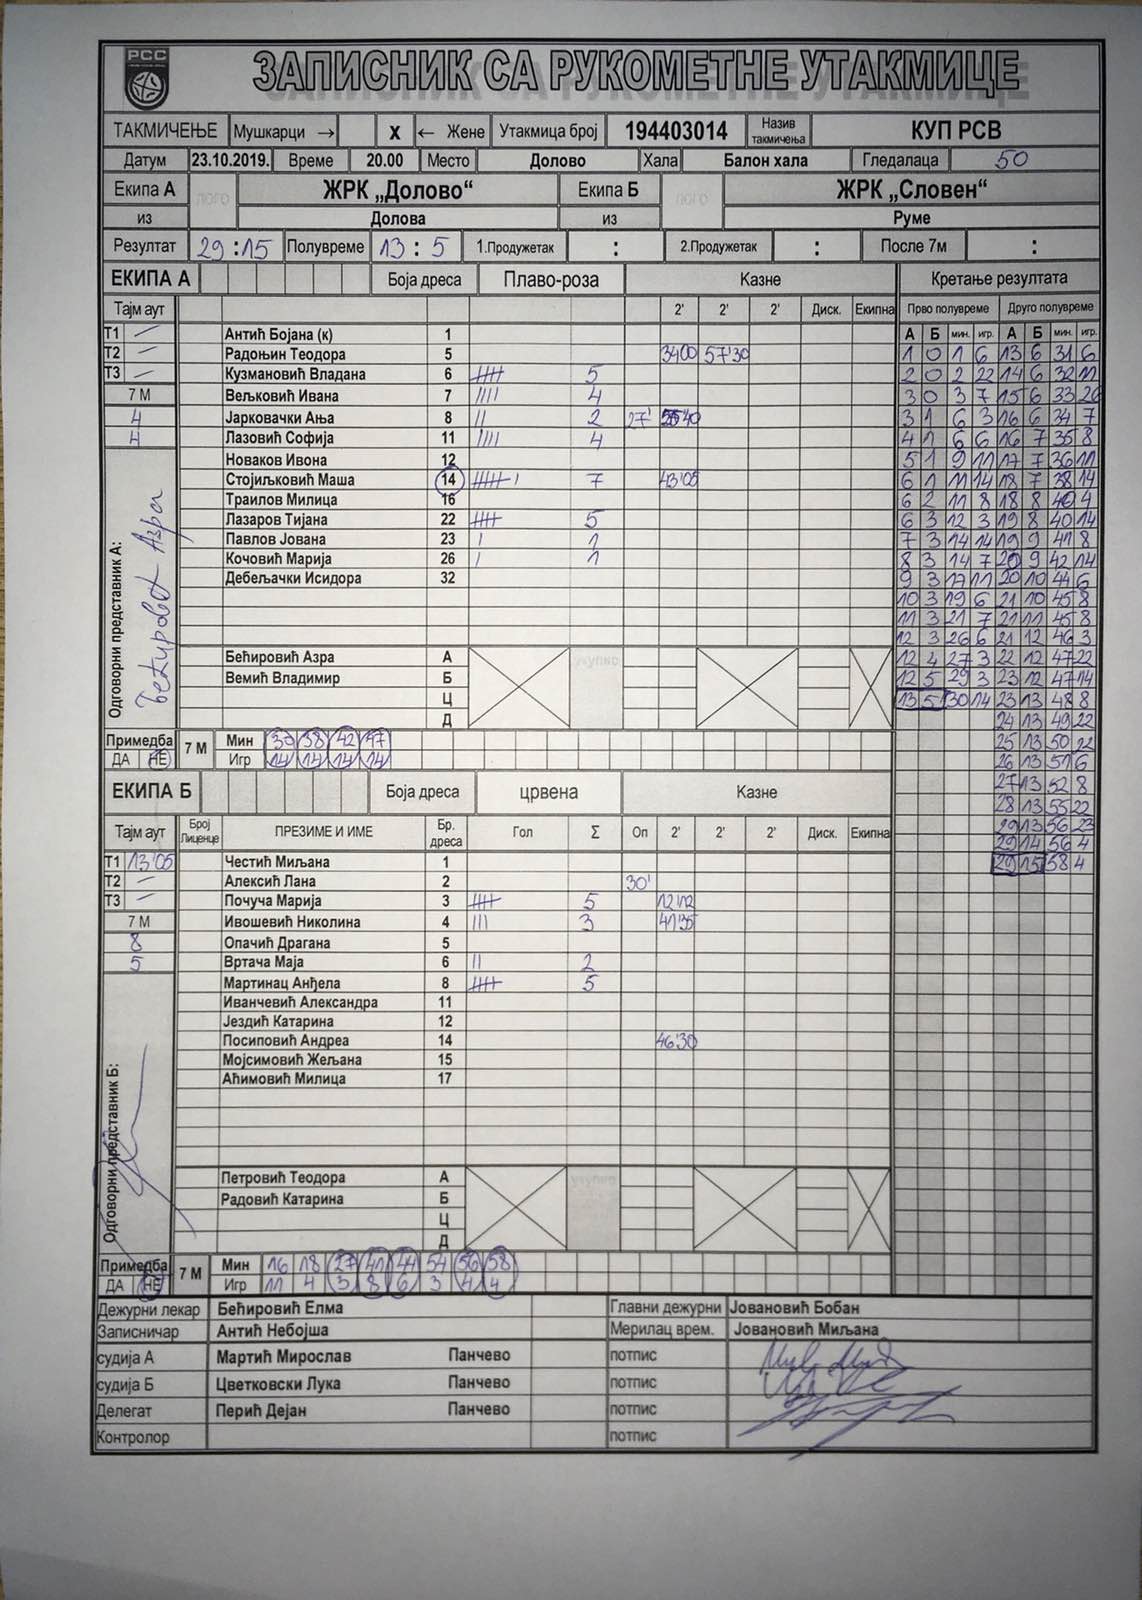 РСС
ЗАПИСНИК СА РУКОМЕТНЕ УТАКМИЦЕ
ТАКМИЧЕЊЕ Мушкарци → X ← Жене Утакмица број 194403014 Назив такмичења КУП РСВ
Датум 23.10.2019. Време 20.00 Место Долово Хала Балон хала Гледалаца 50
Екипа А ЛОГО ЖРК „Долово“ Екипа Б ЛОГО ЖРК „Словен“
из Долова из Руме
Резултат 29 : 15 Полувреме 13 : 5 1.Продужетак : 2.Продужетак : После 7м :
ЕКИПА А Боја дреса Плаво-роза Казне Кретање резултата
Тајм аут 2' 2' 2' Диск. Екипна Прво полувреме Друго полувреме
Т1 — Антић Бојана (к) 1 А Б мин. игр. А Б мин. игр.
Т2 — Радоњин Теодора 5 34'00 57'30 1 0 1 6 13 6 31 6
Т3 — Кузмановић Владана 6 5 2 0 2 22 14 6 32 11
7 М Вељковић Ивана 7 4 3 0 3 7 15 6 33 26
4 Јарковачки Ања 8 2 27' 3 1 6 3 16 6 34 7
4 Лазовић Софија 11 4 4 1 6 6 16 7 35 8
Новаков Ивона 12 5 1 9 11 17 7 36 11
Стојиљковић Маша 14 7 43'05 6 1 11 14 18 7 38 14
Траилов Милица 16 6 2 11 8 18 8 40 4
Лазаров Тијана 22 5 6 3 12 3 19 8 40 14
Павлов Јована 23 1 7 3 14 14 19 9 41 8
Кочовић Марија 26 1 8 3 14 7 20 9 42 14
Дебељачки Исидора 32 9 3 17 11 20 10 44 6
10 3 19 6 21 10 45 8
11 3 21 7 21 11 45 8
12 3 26 6 21 12 46 3
Одговорни представник А: Бећировић Азра
Бећировић Азра А укупно 12 4 27 3 22 12 47 22
Вемић Владимир Б 12 5 29 3 23 12 47 14
Ц 13 5 30 14 23 13 48 8
Д 24 13 49 22
Примедба 7 М Мин 37 38 42 47 25 13 50 22
ДА НЕ Игр 14 14 14 14 26 13 51 6
ЕКИПА Б Боја дреса црвена Казне 27 13 52 8
28 13 55 22
Тајм аут Број Лиценце ПРЕЗИМЕ И ИМЕ Бр. дреса Гол Σ Оп 2' 2' 2' Диск. Екипна 29 13 56 23
29 14 56 4
Т1 13'05 Честић Миљана 1 29 15 58 4
Т2 — Алексић Лана 2 30'
Т3 — Почуча Марија 3 5 12'12
7 М Ивошевић Николина 4 3 41'35
8 Опачић Драгана 5
5 Вртача Маја 6 2
Мартинац Анђела 8 5
Иванчевић Александра 11
Јездић Катарина 12
Посиповић Андреа 14 46'30
Мојсимовић Жељана 15
Аћимовић Милица 17
Одговорни представник Б:
Петровић Теодора А укупно
Радовић Катарина Б
Ц
Д
Примедба 7 М Мин 16 18 27 41 44 54 56 58
ДА НЕ Игр 11 4 3 8 6 3 4 4
Дежурни лекар Бећировић Елма Главни дежурни Јовановић Бобан
Записничар Антић Небојша Мерилац врем. Јовановић Миљана
судија А Мартић Мирослав Панчево потпис
судија Б Цветковски Лука Панчево потпис
Делегат Перић Дејан Панчево потпис
Контролор потпис